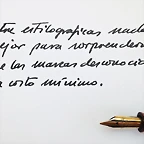 tre estilograficas nada
ejor para sorprenderse
e las marcas desconocid
a costo mínimo.